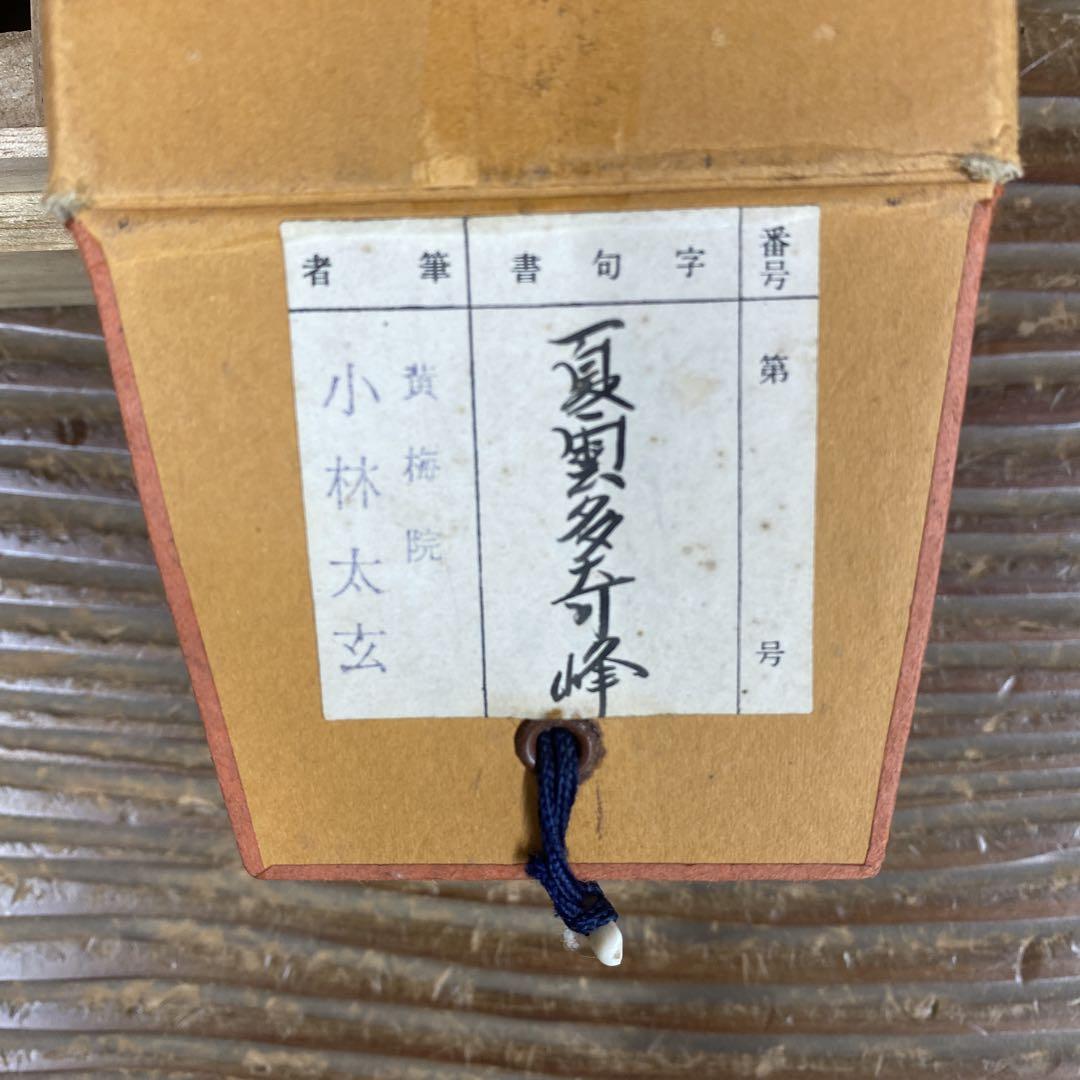 番号
第 号
字句書
夏雲多奇峰
筆者
黄梅院
小林太玄